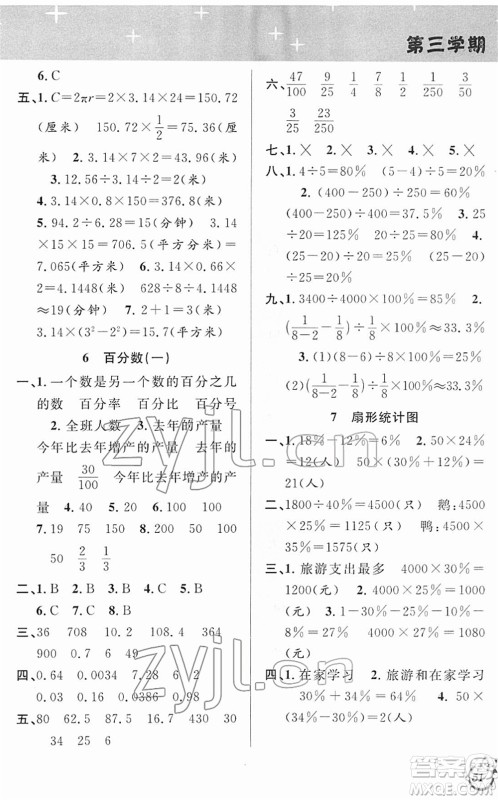 第三学期
6. C
五、1. C=2πr=2×3.14×24=150.72
(厘米) 150.72×1/2=75.36(厘米)
=1.5072(米) 2. 3.14×7×2=43.96
(米) 3. 12.56÷3.14÷2=2(米)
4. 3.14×0.8×150=376.8(米)
5. 94.2÷6.28=15(分钟) 3.14×
15×15=706.5(平方米) 3.14×2×
2=12.56(平方米) 6. 3.14×0.66×
2=4.1448(米) 628÷8÷4.1448
≈19(分钟) 7. 2+1=3(米)
3.14×(3²-2²)=15.7(平方米)
6 百分数(一)
一、1. 一个数是另一个数的百分之几
的数 百分率 百分比 百分号
2. 全班人数 3. 去年的产量
今年比去年增产的产量 去年的
产量 30/100 今年比去年增产的产
量 4. 40 5. 20 6. 40
7. 19 75 150 8. 200 100
50 2/3 1/3
二、1. B 2. B 3. B 4. B 5. B
6. C 7. C 8. B 9. B
三、36 708 10.2 64 0.69
900 0.7 6 49
四、0.64 0.0034 7.28 0.6
0.03 0.16 0.0015 0.15
五、80 62.5 87.5 15 30
34 25 6
六、47/100 9/25 1/4 7/8 1/2 3/4
3/25 23/250
七、1.× 2.× 3.× 4.× 5.×
八、1. 4÷5=80% (5-4)÷5=20%
2. (400-250)÷250=60%
(400-250)÷400=37.5% 3. 25
÷20=125% (25-20)÷20=
25% 20÷25=80% (25-20)÷
25=20%
九、1. 3400÷4000×100%=85%
2. (1/(8-2)-1/8)÷1/8×100%≈33.3%
3. (1)(8-6)÷6×100%≈33.3%
(2)(1/(8-2)-1/8)÷1/8×100%≈33.3%
7 扇形统计图
一、1. 18%-12%=6% 2. 50×24%
=12(人) 3. 50×(30%-20%)
=5(人)
二、1800÷40%=4500(只) 鹅:4500
×25%=1125(只) 鸭:4500
×35%=1575(只)
三、1. 旅游支出最多 4000×30%=
1200(元) 2. 4000×25%=1000
(元) 3. 1-30%-12%-25%=
33%
四、1. 在家学习 2. 旅游和在家学习
30%+34%=64% 3. 50×
(34%-30%)=2(人)
zyjl.cn
zyjl.cn
51